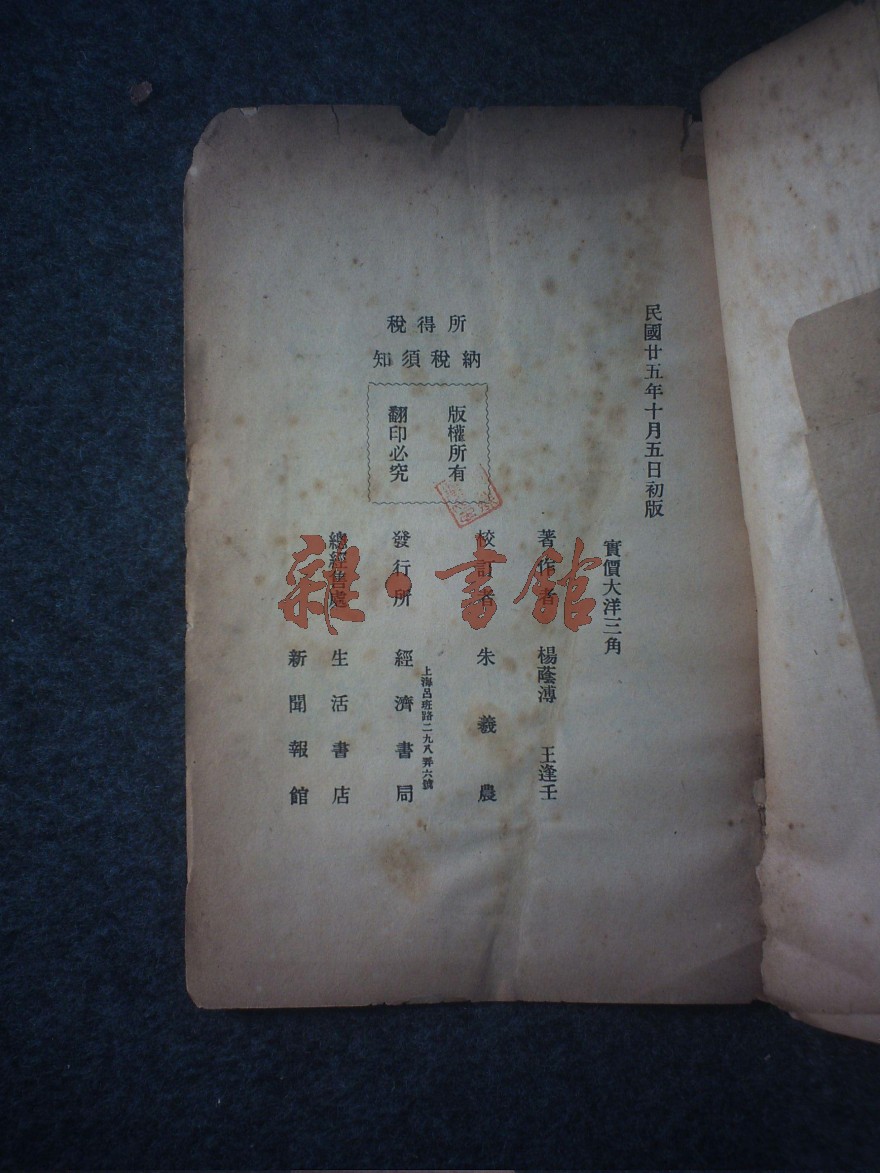 民國廿五年十月五日初版
實價大洋三角
所得稅
納稅須知
版權所有
翻印必究
著作者 楊蔭溥 王逢壬
校訂者 朱羲農
發行所 經濟書局
上海呂班路二九八弄六號
總經售處 生活書店
新聞報館
雜·書館